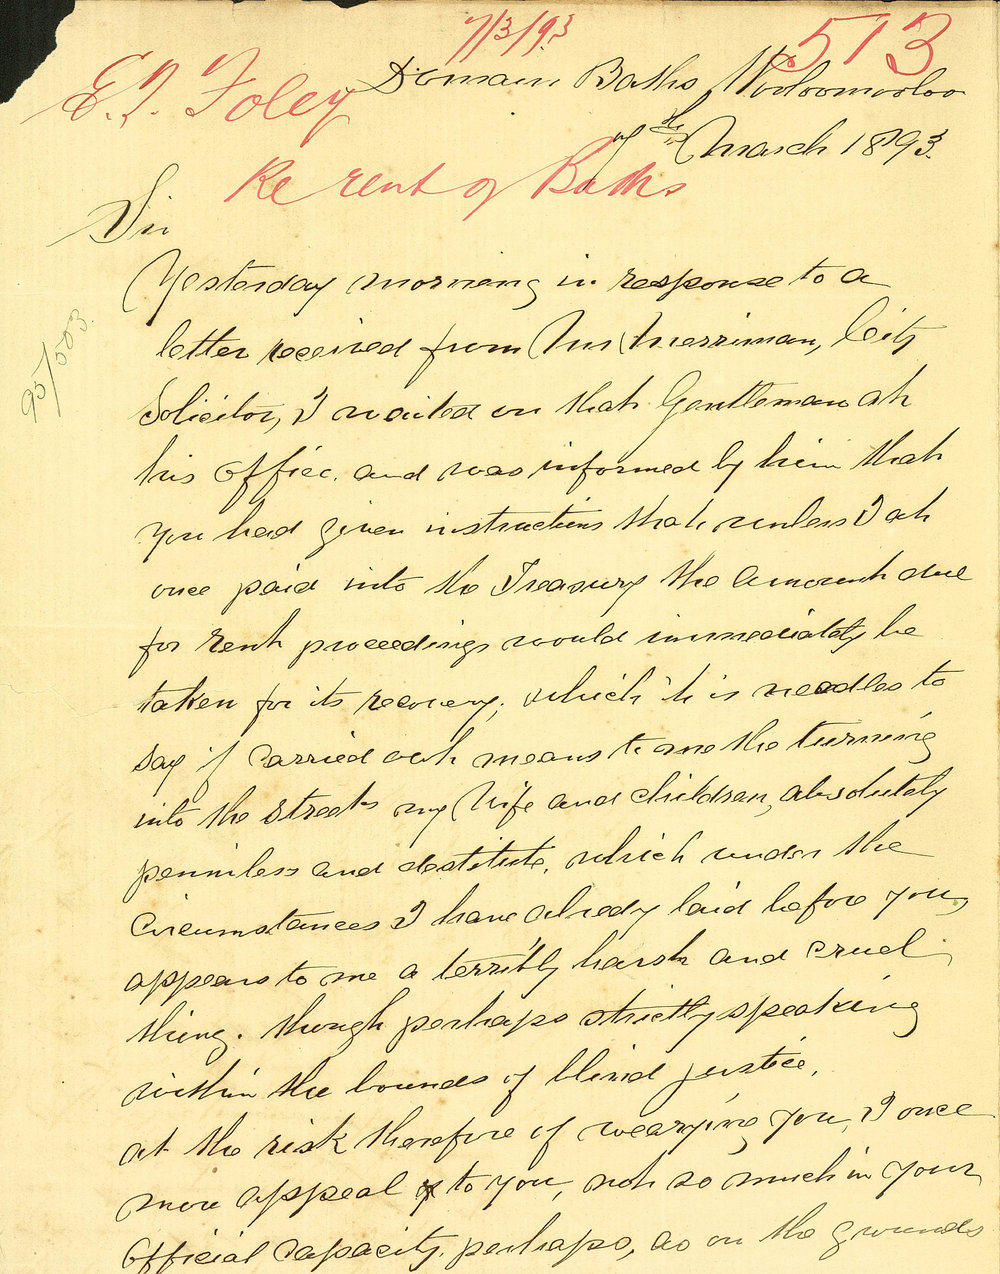 7/3/93
513
E. J. Foley
Domain Baths Wooloomooloo
7th March 1893.
Re rent of Baths
Sir
95/503.
Yesterday morning in response to a
letter received from Mr Merriman, City
Solicitor, I waited on that Gentleman at
his office. and was informed by him that
you had given instructions that unless I at
once paid into the Treasury the amount due
for rent proceedings would immediately be
taken for its recovery; which it is needles to
say if carried out means to me the turning
into the streets my Wife and children, absolutely
penniless and destitute, which under the
circumstances I have alredy laid before you,
appears to me a terribly harsh and cruel
thing. though perhaps strictly speaking
within the bounds of blind justice.
at the risk therefore of wearying you, I once
more appeal to you, not so much in your
official capacity. perhaps, as on the grounds